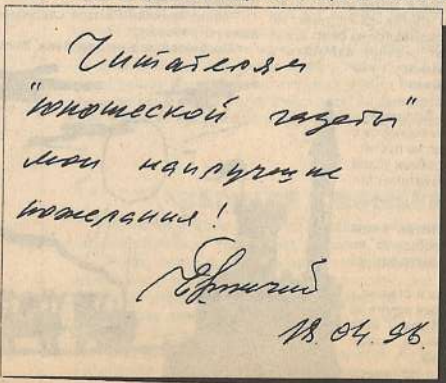 Читателям
"юношеской газеты"
мои наилучшие
пожелания!
.04.96.